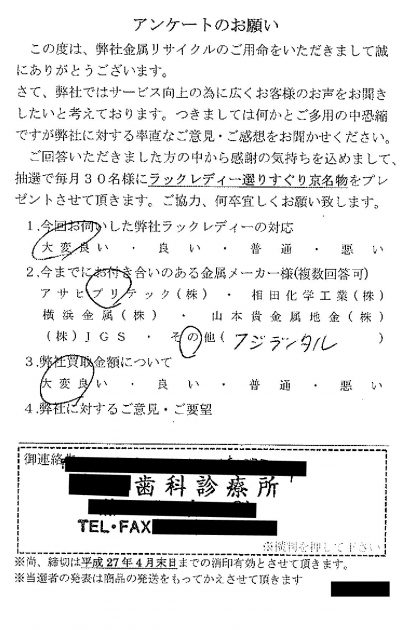 アンケートのお願い
この度は、弊社金属リサイクルのご用命をいただきまして誠
にありがとうございます。
さて、弊社ではサービス向上の為に広くお客様のお声をお聞き
したいと考えております。つきましては何かとご多用の中恐縮
ですが弊社に対する率直なご意見・ご感想をお聞かせください。
ご回答いただきました方の中から感謝の気持ちを込めまして、
抽選で毎月３０名様にラックレディー選りすぐり京名物をプレ
ゼントさせて頂きます。ご協力、何卒宜しくお願い致します。
1.今回お伺いした弊社ラックレディーの対応
大変良い ・ 良い ・ 普通 ・ 悪い
2.今までにお付き合いのある金属メーカー様(複数回答可)
アサヒプリテック(株) ・ 相田化学工業(株)
横浜金属(株) ・ 山本貴金属地金(株)
(株)JGS ・ その他(フジデンタル)
3.弊社買取金額について
大変良い ・ 良い ・ 普通 ・ 悪い
4.弊社に対するご意見・ご要望
御連絡先
歯科診療所
TEL・FAX
を押して下さい
※尚、締切は平成27年4月末日までの消印有効とさせて頂きます。
※当選者の発表は商品の発送をもってかえさせて頂きます